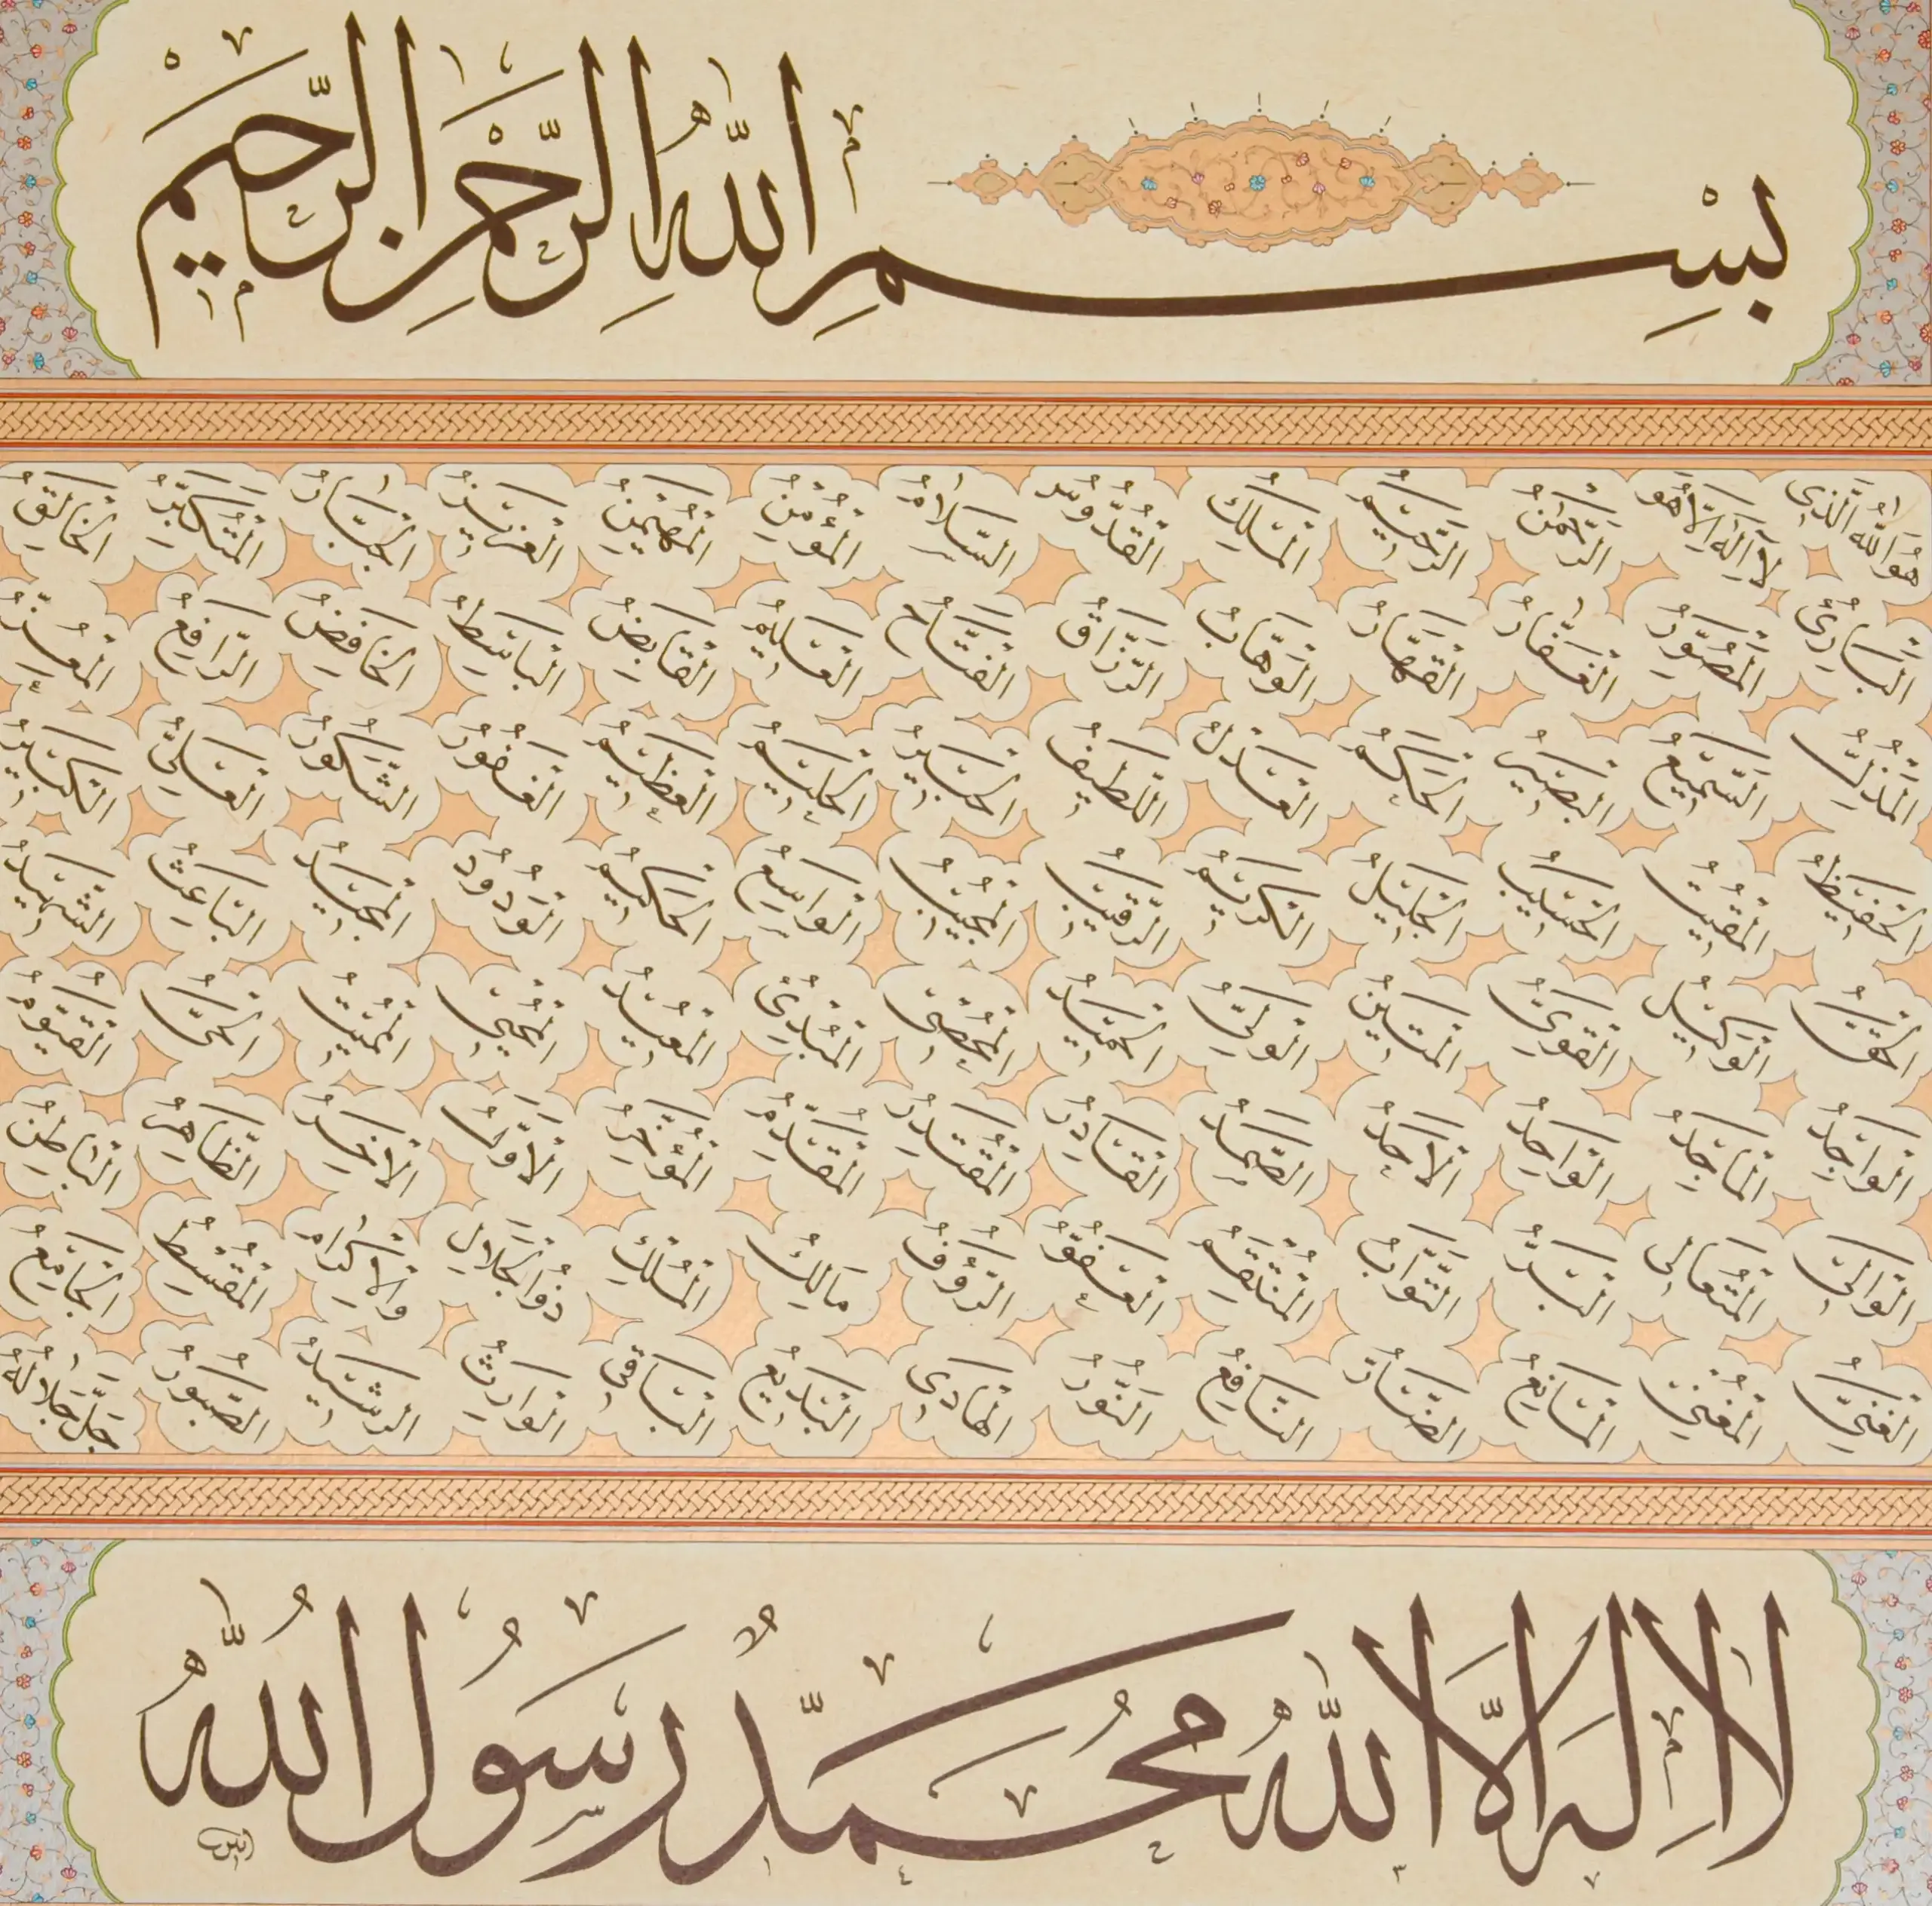 بِسْمِ اللّٰهِ الرَّحْمٰنِ الرَّحِيمِ
هُوَ اللّٰهُ الَّذِي لَا اِلٰهَ اِلَّا هُوَ الرَّحْمٰنُ الرَّحِيمُ الْمَلِكُ الْقُدُّوسُ السَّلَامُ الْمُؤْمِنُ الْمُهَيْمِنُ الْعَزِيزُ الْجَبَّارُ الْمُتَكَبِّرُ الْخَالِقُ
الْبَارِئُ الْمُصَوِّرُ الْغَفَّارُ الْقَهَّارُ الْوَهَّابُ الرَّزَّاقُ الْفَتَّاحُ الْعَلِيمُ الْقَابِضُ الْبَاسِطُ الْخَافِضُ الرَّافِعُ الْمُعِزُّ
الْمُذِلُّ السَّمِيعُ الْبَصِيرُ الْحَكَمُ الْعَدْلُ اللَّطِيفُ الْخَبِيرُ الْحَلِيمُ الْعَظِيمُ الْغَفُورُ الشَّكُورُ الْعَلِيُّ الْكَبِيرُ
الْحَفِيظُ الْمُقِيتُ الْحَسِيبُ الْجَلِيلُ الْكَرِيمُ الرَّقِيبُ الْمُجِيبُ الْوَاسِعُ الْحَكِيمُ الْوَدُودُ الْمَجِيدُ الْبَاعِثُ الشَّهِيدُ
الْحَقُّ الْوَكِيلُ الْقَوِيُّ الْمَتِينُ الْوَلِيُّ الْحَمِيدُ الْمُحْصِي الْمُبْدِئُ الْمُعِيدُ الْمُحْيِي الْمُمِيتُ الْحَيُّ الْقَيُّومُ
الْوَاجِدُ الْمَاجِدُ الْوَاحِدُ الْاَحَدُ الصَّمَدُ الْقَادِرُ الْمُقْتَدِرُ الْمُقَدِّمُ الْمُؤَخِّرُ الْاَوَّلُ الْاٰخِرُ الظَّاهِرُ الْبَاطِنُ
الْوَالِي الْمُتَعَالِي الْبَرُّ التَّوَّابُ الْمُنْتَقِمُ الْعَفُوُّ الرَّؤُفُ مَالِكُ الْمُلْكِ ذُو الْجَلَالِ وَالْاِكْرَامِ الْمُقْسِطُ الْجَامِعُ
الْغَنِيُّ الْمُغْنِي الْمَانِعُ الضَّارُّ النَّافِعُ النُّورُ الْهَادِي الْبَدِيعُ الْبَاقِي الْوَارِثُ الرَّشِيدُ الصَّبُورُ جَلَّ جَلَالُهُ
لَا اِلٰهَ اِلَّا اللّٰهُ مُحَمَّدٌ رَسُولُ اللّٰهِ